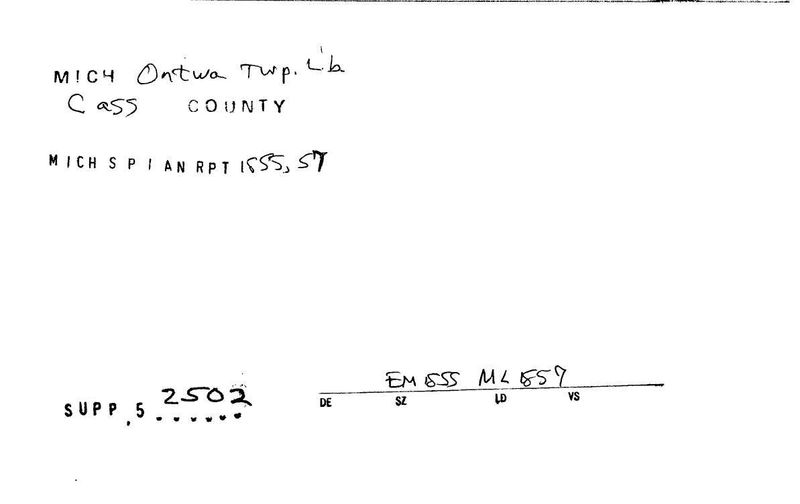 MICH Ontwa Twp. Lib
Cass COUNTY
MICH S P I AN RPT 1855, 57
EM 855 ML 857
SUPP .5 2502
DE SZ LD VS